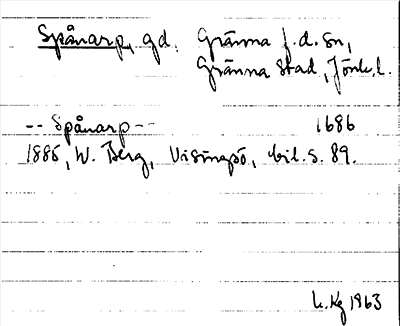 Spånarp, gd. Gränna f.d. sn,
Gränna stad, Jönk.l.
-- Spånarp -- 1686
1885, W. Berg, Visingsö, bil. s. 89.
1963